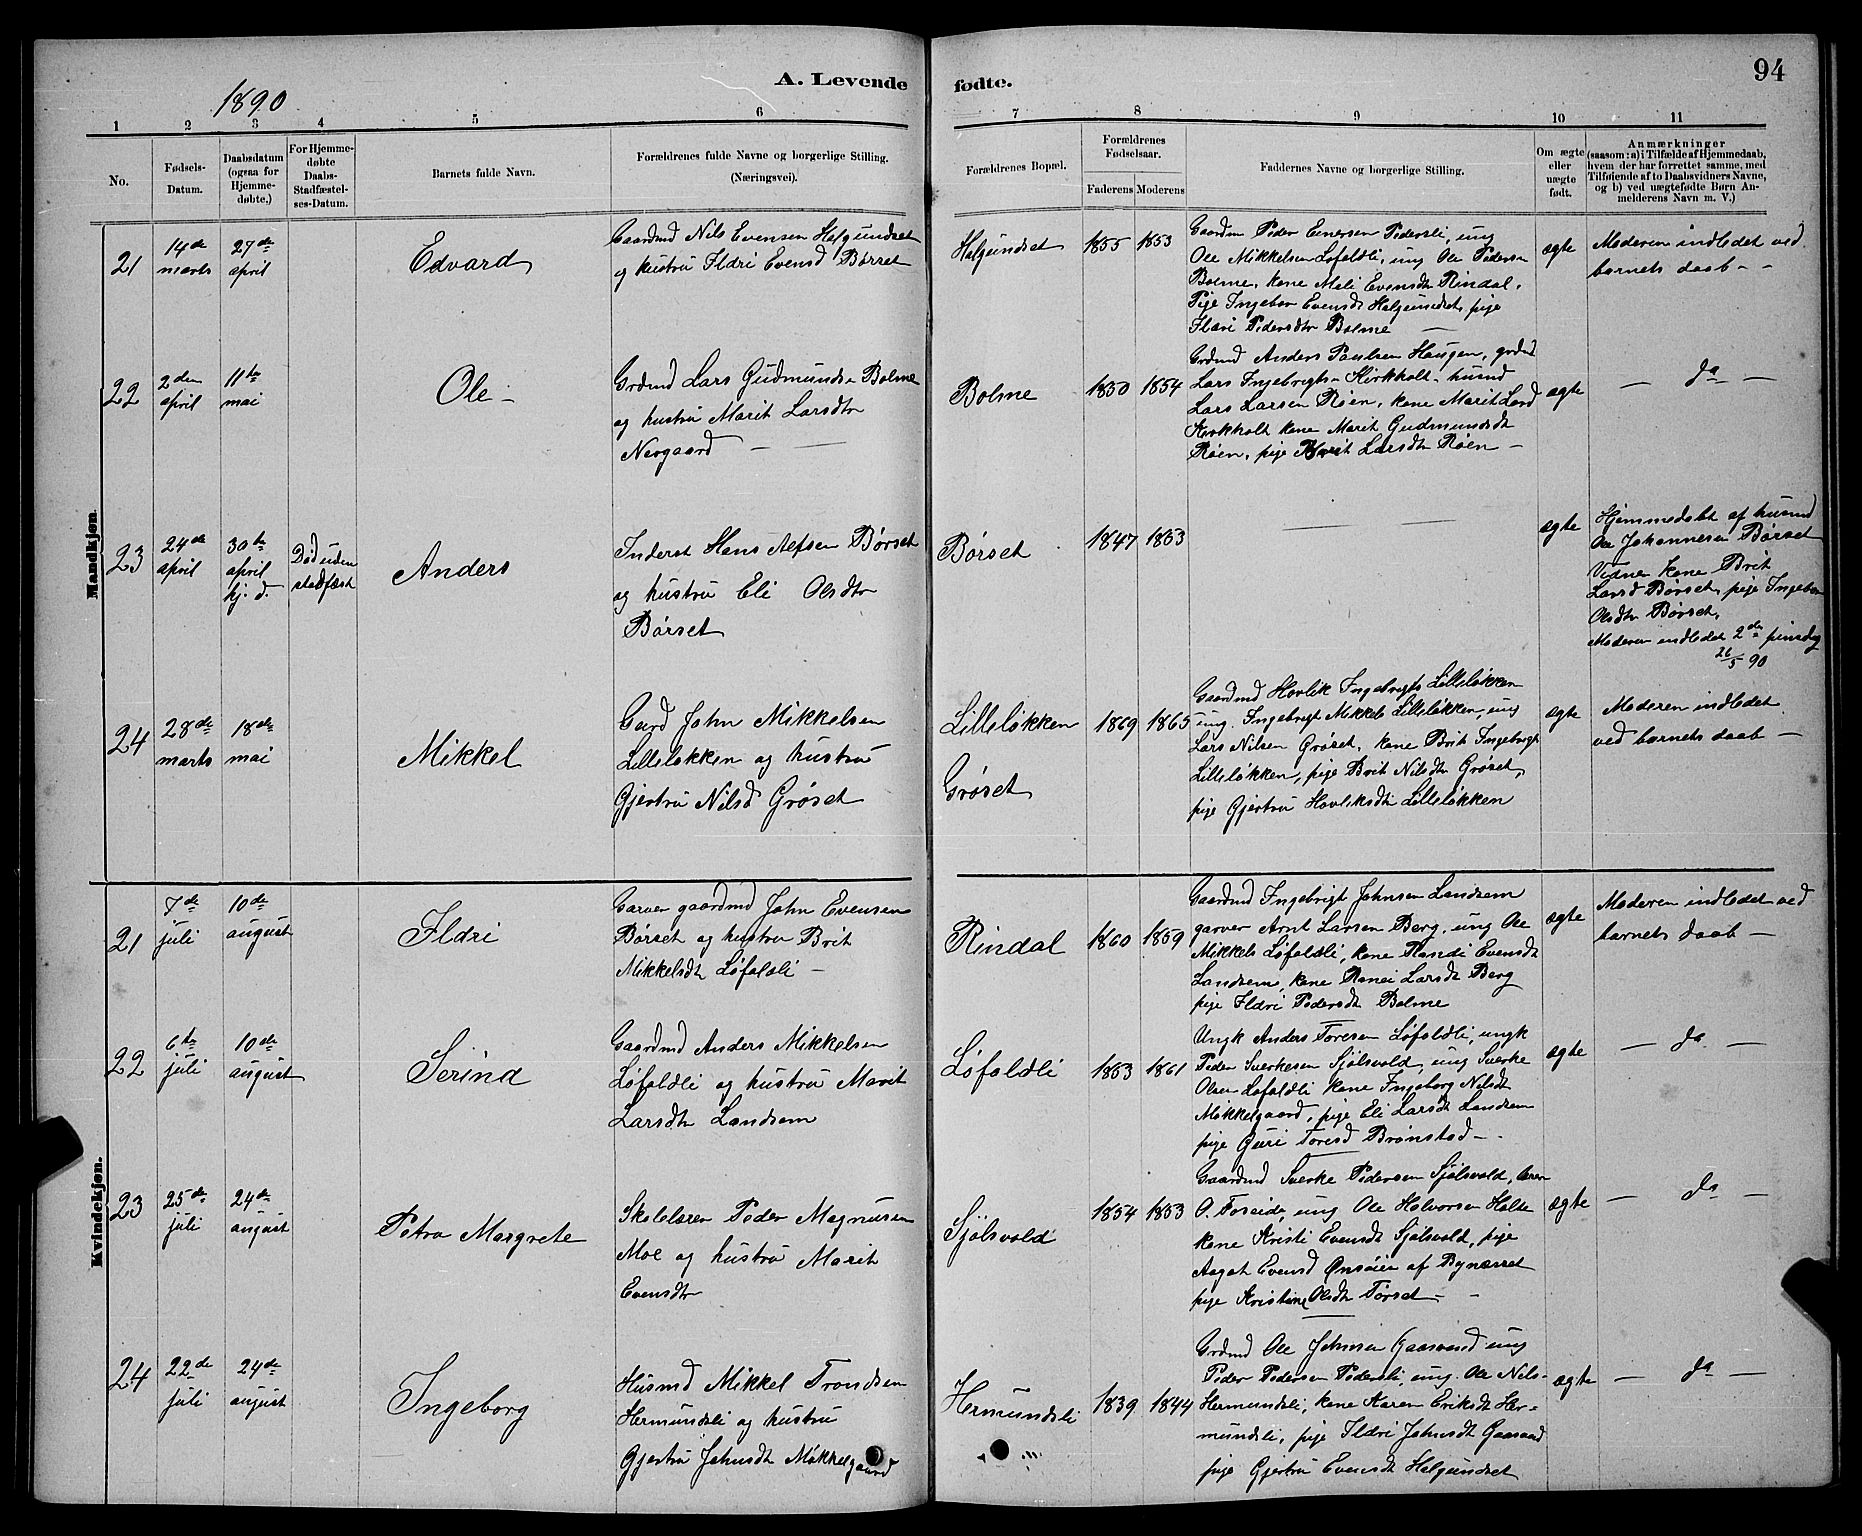 1890
A. Levende fødte.
94
1 2 3 4 5 6 7 8 9 10 11
No.
Fødsels-
Datum.
Daabsdatum
(ogsaa for
Hjemme-
døbte.)
For Hjemme-
døbte
Daabs-
Stadfæstel-
ses-Datum.
Barnets fulde Navn.
Forældrenes fulde Navne og borgerlige Stilling.
(Næringsvei).
Forældrenes Bopæl.
Forældrenes
Fødselsaar.
Faderens Moderens
Faddernes Navne og borgerlige Stilling.
Om ægte
eller
uægte
født.
Anmærkninger
(saasom: a) i Tilfælde af Hjemmedaab,
hvem der har forrettet samme, med
Tilføiende af to Daabsvidners Navne,
og b) ved uægtefødte Børn An-
melderens Navn m. V.)
Mandkjøn.
21
14de
marts
27de
april
Edvard
Gaardmd Nils Evensen Helgundset
og hustru Ildri Evensd Børset
Helgundset
1855 1853
Gaardm Peder Einersen Pedersli, ung
Ole Mikkelsen Løfaldli, ung Ole Peders-
Bolme, kone Meli Evensdt Rindal,
Pige Ingebor Evensdt Helgundset, pige
Ildri Pedersdtr Bolme —
ægte
Moderen indledet ved
barnets daab - -
22
2den
april
11te
mai
Ole -
Grdmd Lars Gudmunds- Bolme
og hustru Marit Larsdtr
Nergaard — —
Bolme
1850 1854
Grdmd Anders Paulsen Haugen, grdmd
Lars Ingebrigts- Kirkholt- husmd
Lars Larsen Røen, kone Marit Larsd
Kirkholt kone Marit Gudmundsdt
Røen, pige Marit Larsdt Røen -
ægte
— do —
23
24de
april
30te
april
hj. d.
Død uden
stadfæst
Anders
Inderst Hans Alfsen Børset
og hustru Eli Olsdtr
Børset
Børset
1847 1853
— —
ægte
Hjemmedøbt af husmd
Ole Johannesen Børset
Vidner kone Brit
Larsd Børset, pige Ingebor
Olsdtr Børset,
Moderen indledet 2den pinsdag
26/5 90
24
28de
marts
18de
mai
Mikkel
Gard John Mikkelsen
Lilleløkken og hustru
Gjertru Nilsd Grøset
Lilleløkken
Grøset
1869 1865
Gaardmd Hovlik Ingebrigts Lilleløkken
ung. Ingebrigt Mikkels Lilleløkken, ung
Lars Nilsen Grøset, kone Brit Ingebrigt
Lilleløkken, pige Brit Nilsdt Grøset,
pige Gjertru Hovliksdt Lilleløkken
ægte
Moderen indledet
ved barnets daab —
Kvindekjøn.
21
7de
juli
10de
august
Ildri
Garver gaardmd John Evensen
Børset og hustru Brit
Mikkelsdt Løfaldli -
Rindal
1860 1859
Gaardmd Ingebrigt Johnsen Landsem
garver Arnt Larsen Berg, ung Ole
Mikkels Løfaldli, kone Randi Evensdt
Landsem, kone Ranei Larsdt Berg
pige Ildri Pedersdt Bolme
ægte
Moderen indledet ved
barnets daab —
22
6te
juli
10de
august
Serind
Gaardmd Anders Mikkelsen
Løfaldli og hustru Marit
Larsdtr Landsem
Løfaldli
1853 1861
Ungk Anders Toresen Løfaldli, ungk
Peder Sverkesen Sjølsvold, ung Sverke
Olsen Løfaldli kone Ingeborg Nilsdt
Mikkelgaard, pige Eli Larsdt Landsem
pige Guri Toresd Brønstad —
ægte
— do. —
23
25de
juli
24de
august
Petra Margrete
Skolelærer Peder Magnusen
Moe og hustru Marit
Evensdtr
Sjølsvold
1854 1853
Gaardmd Sverke Pedersen Sjølsvold, lærer
O. Foseide, ung Ole Halvorsen Holte
kone Kristi Evensdt Sjølsvold, pige
Aagot Evensd Ønsøien af Bynæsset
pige Kristine Olsdt Tørset - -
ægte
— do —
24
22de
juli
24de
august
Ingeborg
Husmd Mikkel Trondsen
Hermundsli og hustru
Gjertru Johnsdt Møkkelgaard
Hermundsli
1839 1844
Grdmd Ole Johnsen Gaasvand ung
Peder Pedersen Pedersli, ung. Ole Nils-
Hermundsli, kone Karen Eriksdt Her-
mundsli, pige Ildri Johnsdt Gaasvand
pige Gjertru Evensdt Helgundset
ægte
— do —